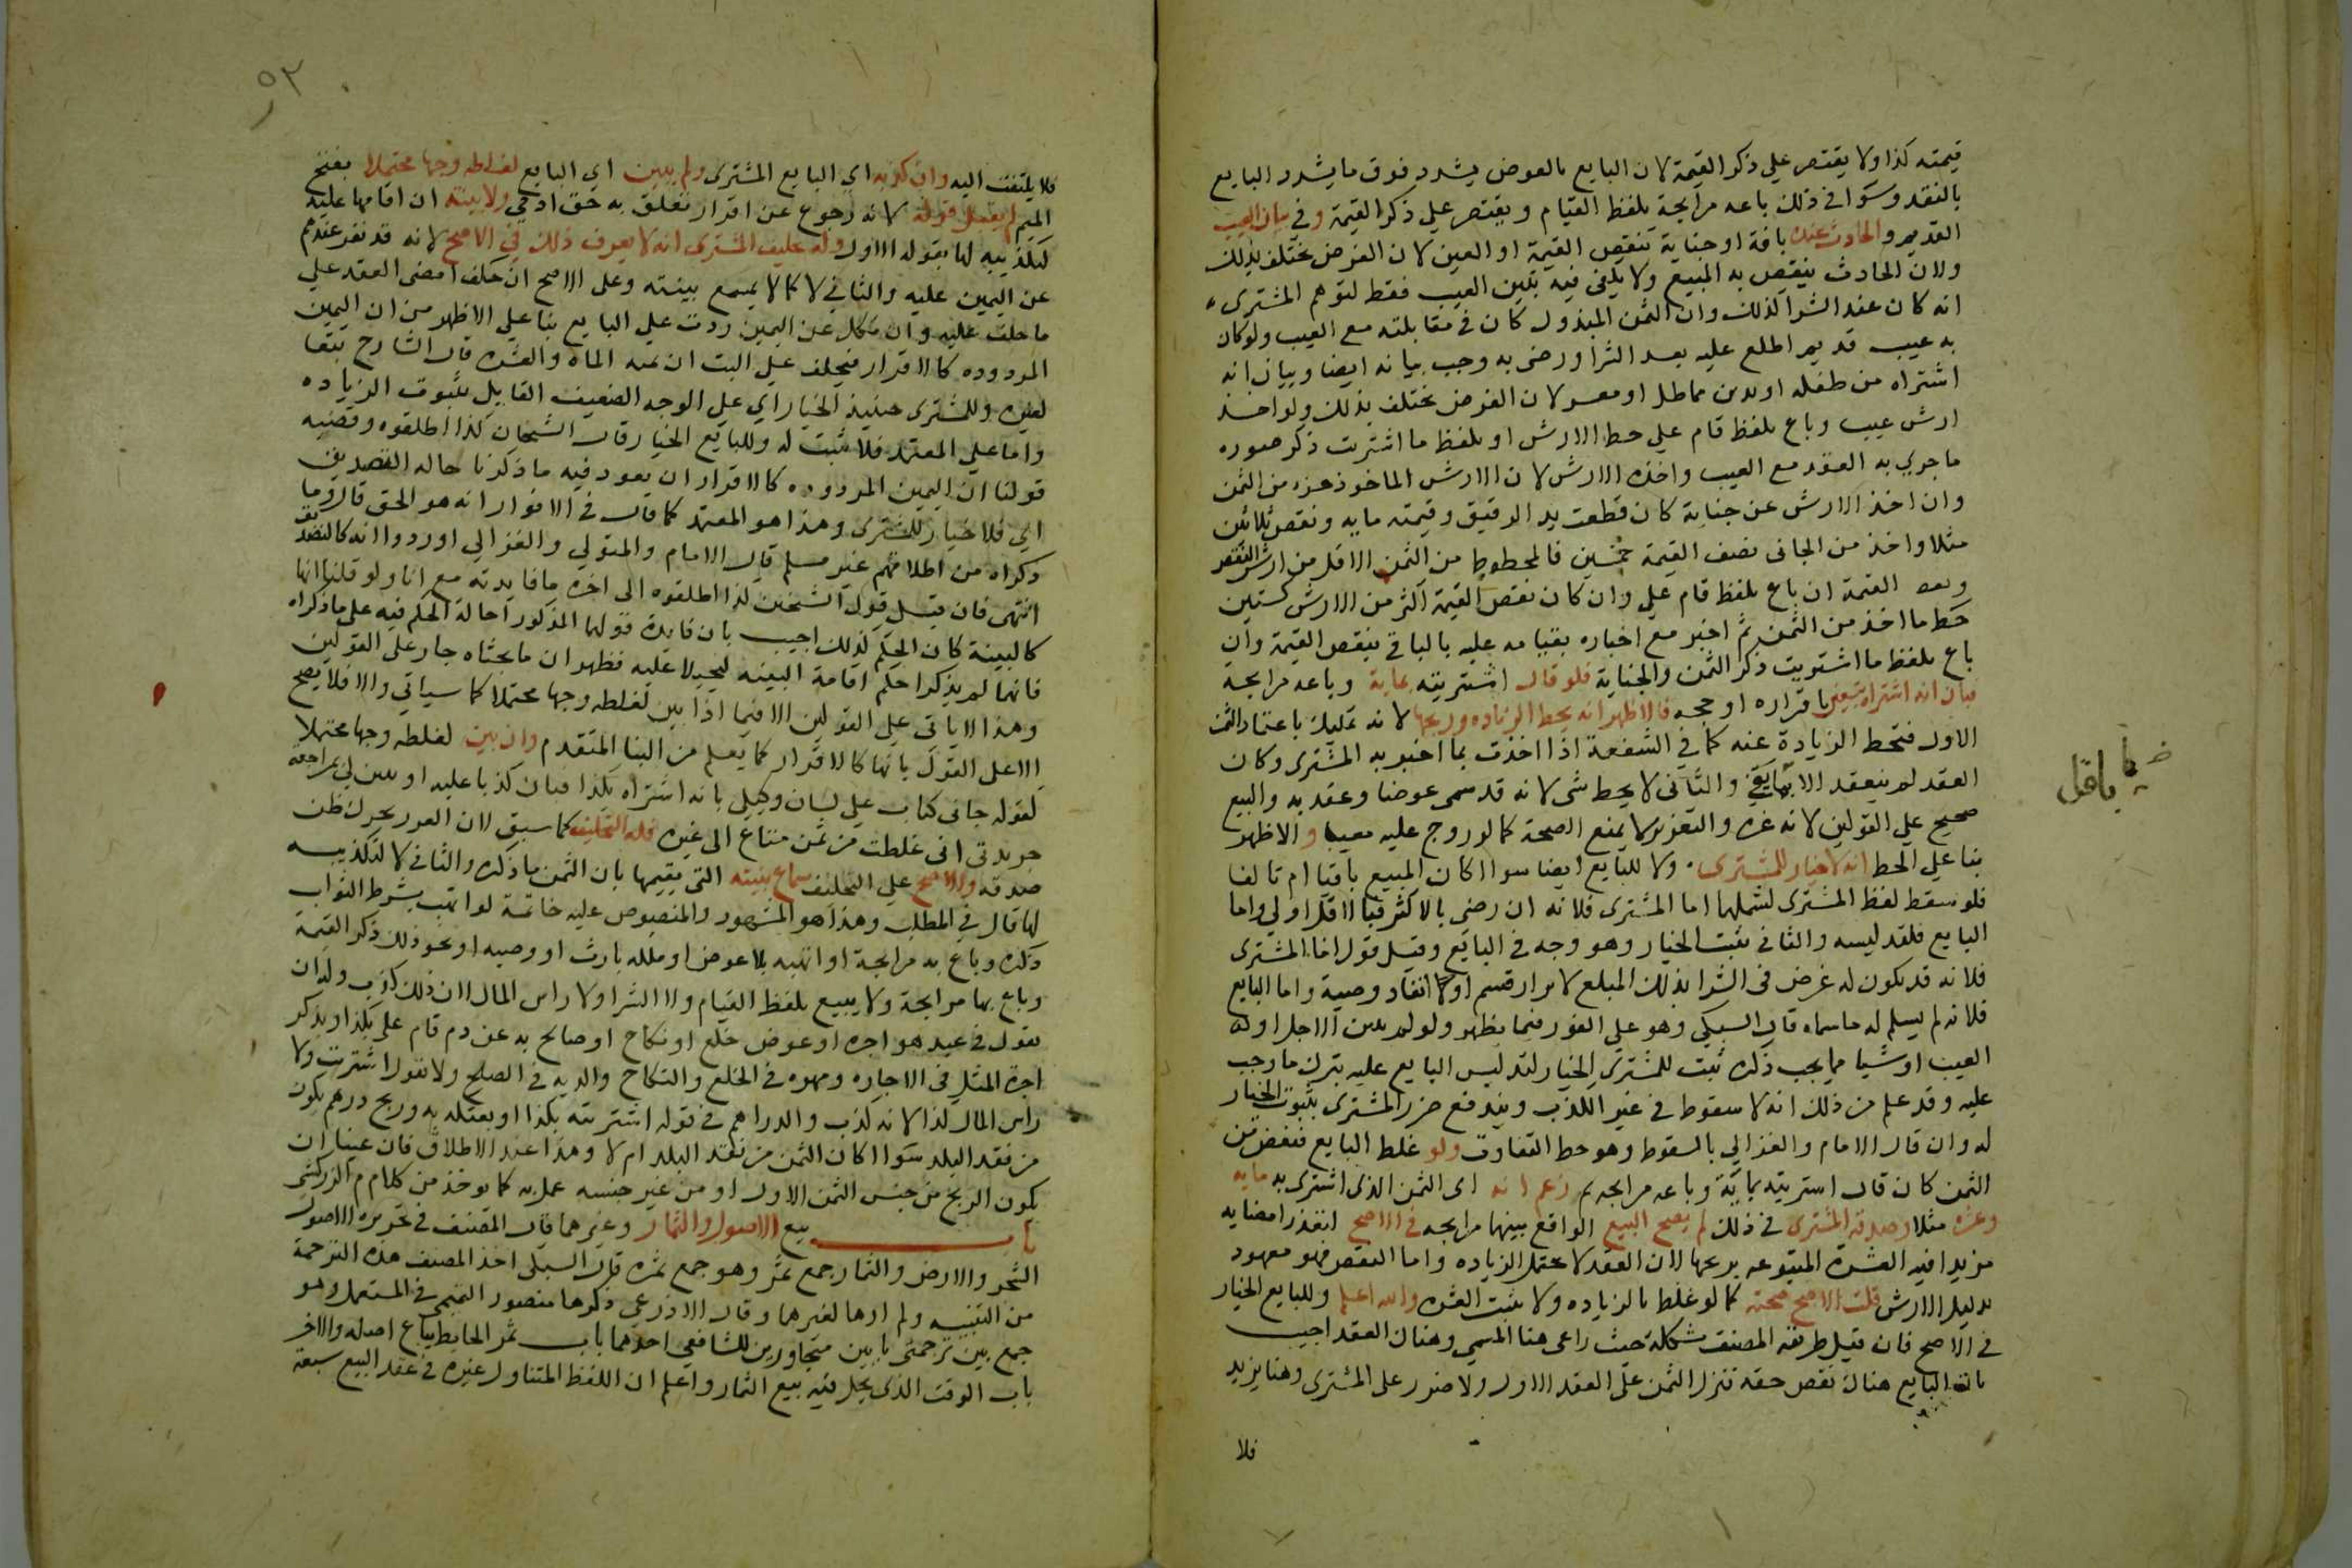 قيمته كذا ولا يقتصر علي ذكر القيمة لان البايع بالعوض يشدد فوق ما يشدد البايع
بالنقد وسوا في ذلك باعه مرابحة بلفظ القيام ويقتصر علي ذكر القيمة وفي بيان العيب
القديم والحادث عنده بافة او جناية تنقص القيمة او العين لان الغرض يختلف بذلك
ولان الحادث ينقص به المبيع ولا يكفي فيه تبيين العيب فقط لتوهم المشتري
انه كان عند الشرا كذلك وان الثمن المبذول كان في مقابلته مع العيب ولو كان
به عيب قديم اطلع عليه بعد الشرا ورضي به وجب بيانه ايضا وبيان انه
اشتراه من طفله او بدين مماطل او معسر لان الغرض يختلف بذلك ولو اخذ
ارش عيب وباع بلفظ قام علي حط الارش او بلفظ ما اشتريت ذكر صورة
ما جري به العقد مع العيب واخذه الارش لان الارش الماخوذ جزء من الثمن
وان اخذ الارش عن جناية كان قطعت يد الرقيق وقيمته مايه ونقص ثلاثين
مثلا واخذ من الجاني نصف القيمة خمسين فالمحطوط من الثمن الاقل من ارش النقص
ونصف القيمة ان باع بلفظ قام علي وان كان نقص القيمة اكثر من الارش كستين
حط ما اخذ من الثمن ثم اخبر مع اخباره بقيامه عليه بالباقي بنقص القيمة وان
باع بلفظ ما اشتريت ذكر الثمن والجناية فلو قال اشتريته بماية وباعه مرابحة
فبان انه اشتراه بتسعين باقراره او حجه فالاظهر انه يحط الزياده وربحها لانه تمليك باعتماد الثمن
الاول فتحط الزيادة عنه كما في الشفعة اذا اخذت بما اخبر به المشتري وكان
العقد لم ينعقد الا بما بقي والثاني لا يحط شي لانه قد سمي عوضا وعقد به والبيع
صحيح علي القولين لانه غره والتغرير لا يمنع الصحة كما لو روج عليه معيبا والاظهر
بنا علي الحط انه لا خيار للمشتري ولا للبايع ايضا سوا اكان المبيع باقيا ام تالفا
فلو سقط لفظ المشتري لشملهما اما المشتري فلانه ان رضي بالاكثر فبالاقل اولي واما
البايع فلتدليسه والثاني يثبت الخيار وهو وجه في البايع وقيل قول اما المشتري
فلانه قد يكون له غرض في الشرا بذلك المبلغ لابرار قسم او لانفاد وصية واما البايع
فلانه لم يسلم له ما سماه قال السبكي وهو علي الفور فيما يظهر ولو لم يبين الاجل او
العيب او شيا مما يجب ذكره ثبت للمشتري الخيار لتدليس البايع عليه بترك ما وجب
عليه وقد علم من ذلك انه لا سقوط في غير الكذب ويندفع ضرر المشتري بثبوت الخيار
له وان قال الامام والغزالي بالسقوط وهو حط التفاوت ولو غلط البايع فنقص من
الثمن كان قال اشتريته بماية وباعه مرابحه ثم زعم انه اي الثمن الذي اشتري به مايه
وعشره مثلا وصدقه المشتري في ذلك لم يصح البيع الواقع بينهما مرابحه في الاصح لتعذر امضايه
مزيدا فيه العشرة المتبوعه بربحها لان العقد لا يحتمل الزياده واما النقص فهو معهود
بدليل الارش قلت الاصح صحته كما لو غلط بالزياده ولا تثبت العشره والله اعلم وللبايع الخيار
في الاصح فان قيل طريقه المصنف مشكلة حيث راعي هنا المسمي وهناك العقد اجيب
بان البايع هناك نقص حقه فنزل الثمن علي العقد الاول ولا ضرر علي المشتري وهنا يزيد
فلا
باقل
٥٣
فلا يلتفت اليه وان كذبه اي البايع المشتري ولم يبين اي البايع لغلطه وجها محتملا بفتح
الميم لم يقبل قوله لانه رجوع عن اقرار تعلق به حق ادمي ولا بينته ان اقامها عليه
لتكذيبه لها بقوله الاول وله تحليف المشتري انه لا يعرف ذلك في الاصح لانه قد يقر عند
عن اليمين عليه والثاني لا كما لا يسمع بينته وعلي الاصح ان حلف امضي العقد علي
ما حلف عليه وان نكل عن اليمين ردت علي البايع بنا علي الاظهر من ان اليمين
المردوده كالاقرار فيحلف علي البت ان ثمنه الماه والعشره قال الشارح تبعا
لغيره وللمشتري حينيذ الخيار اي علي الوجه الضعيف القايل بثبوت الزياده
واما علي المعتمد فلا تثبت له وللبايع الخيار قال الشيخان كذا اطلقوه وقضيه
قولنا ان اليمين المردوده كالاقرار ان يعود فيه ما ذكرنا حاله التصديق
اي فلا خيار للمشتري وهذا هو المعتمد كما قال في الانوار انه هو الحق قال وما
ذكراه من اطلاقهم غير مسلم قال الامام والمتولي والغزالي اوردوا انه كالتصديق
انتهي فان قيل قول الشيخين كذا اطلقوه الي اخره ما فايدته مع انا ولو قلنا انها
كالبينة كان الحكم كذلك اجيب بان فايدة قولهما المذكور احالة الحكم فيه علي ما ذكراه
فانهما لم يذكرا حكم اقامة البينه ليحيلا عليه فظهر ان ما بحثاه جار علي القولين
وهذا لا ياتي علي القولين الا فيما اذا بين لغلطه وجها محتملا كما سياتي والا فلا يصح
الا علي القول بانها كالاقرار كما يعلم من البنا المتقدم وان بين لغلطه وجها محتملا
كقوله جاني كتاب علي لسان وكيلي بانه اشتراه بكذا فبان كذبا عليه او تبين لي بمراجعة
جريدتي اني غلطت من ثمن متاع الي غيره فله التحليف كما سبق لان العذر يحرك ظن
صدقه والاصح علي التحليف سماع بينته التي يقيمها بان الثمن ما ذكره والثاني لا لتكذيبه
لها قال في المطلب وهذا هو المشهور والمنصوص عليه خاتمة لو اتهب بشرط الثواب
ذكره وباع به مرابحة او اتهبه بلا عوض او ملكه بارث او وصيه او نحو ذلك ذكر القيمة
وباع بها مرابحة ولا يبيع بلفظ القيام ولا الشرا ولا راس المال لان ذلك كذب وله ان
يقول في عبد هو اجره او عوض خلع او نكاح او صالح به عن دم قام علي بكذا ويذكر
اجرة المثل في الاجاره ومهره في الخلع والنكاح والديه في الصلح ولا يقول اشتريت ولا
راس المال كذا لانه كذب والدراهم في قوله اشتريته بكذا او بعتكه به وربح درهم يكون
من نقد البلد سوا اكان الثمن من نقد البلد ام لا وهذا عند الاطلاق فان عينا ان
يكون الربح من جنس الثمن الاول او من غير جنسه عمل به كما يوخذ من كلام الزركشي
باب بيع الاصول والثمار وغيرهما قال المصنف في تحريره الاصول
الشجر والارض والثمار جمع ثمر وهو جمع ثمره قال السبكي اخذ المصنف هذه الترجمة
من التنبيه ولم ارها لغيرهما وقال الاذرعي ذكرها منصور التميمي في المستعمل وهو
جمع بين ترجمتي بابين متجاورين للشافعي احدهما باب ثمر الحايط يباع اصله والاخر
باب الوقت الذي يحل فيه بيع الثمار واعلم ان اللفظ المتناول غيره في عقد البيع سبعة